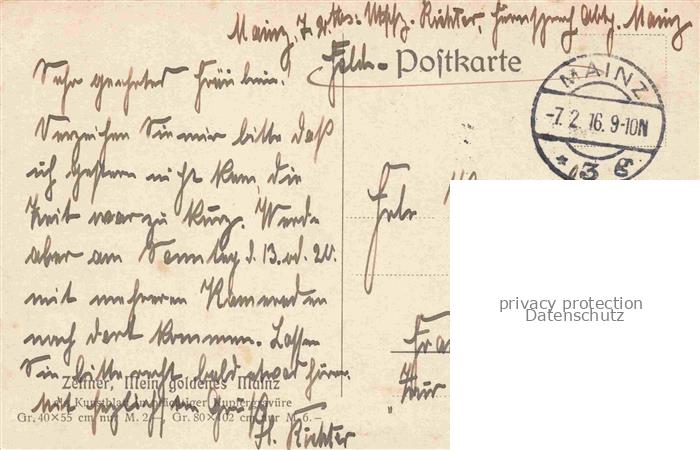 Mainz, 7. 2. Abs: Utffz. Richter, Fernsprech Abtg. Mainz
Feld- Postkarte
MAINZ
-7.2.16.9-10N
* 3 g
Sehr geehrtes Fräulein!
Verzeihen Sie mir bitte daß
ich gestern nicht kam, die
Zeit war zu kurz. Werde
aber am Sonntag d. 13. od. 20.
mit mehreren Kameraden
nach dort kommen. Lassen
Sie bitte recht bald etwas hören.
Mit herzlichem Gruß
Richter
Frl.
Fra
privacy protection
Datenschutz
Zeltner, Mein goldenes Mainz
als Kunstblatt in prächtiger Kupfergravüre
Gr. 40×55 cm nur M. 2.—, Gr. 80×102 cm nur M. 6.—